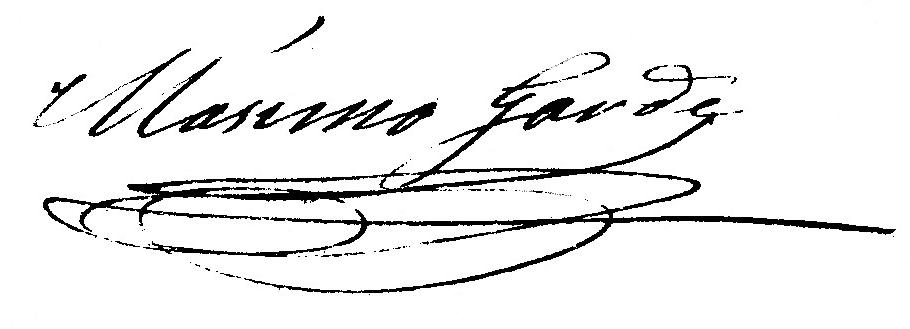 Másimo Garde